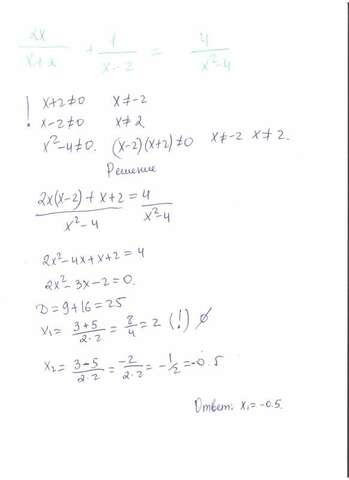 2x/(x+2) + 1/(x-2) = 4/(x²-4)
! x+2≠0 x≠-2
x-2≠0 x≠2
x²-4≠0. (x-2)(x+2)≠0 x≠-2 x≠2.
Решение
(2x(x-2)+x+2)/(x²-4) = 4/(x²-4)
2x²-4x+x+2=4
2x²-3x-2=0.
D=9+16=25
x₁= (3+5)/(2·2) = 8/4 = 2 (!) ∅
x₂= (3-5)/(2·2) = -2/(2·2) = -1/2 = -0.5
Ответ: x₁=-0.5.